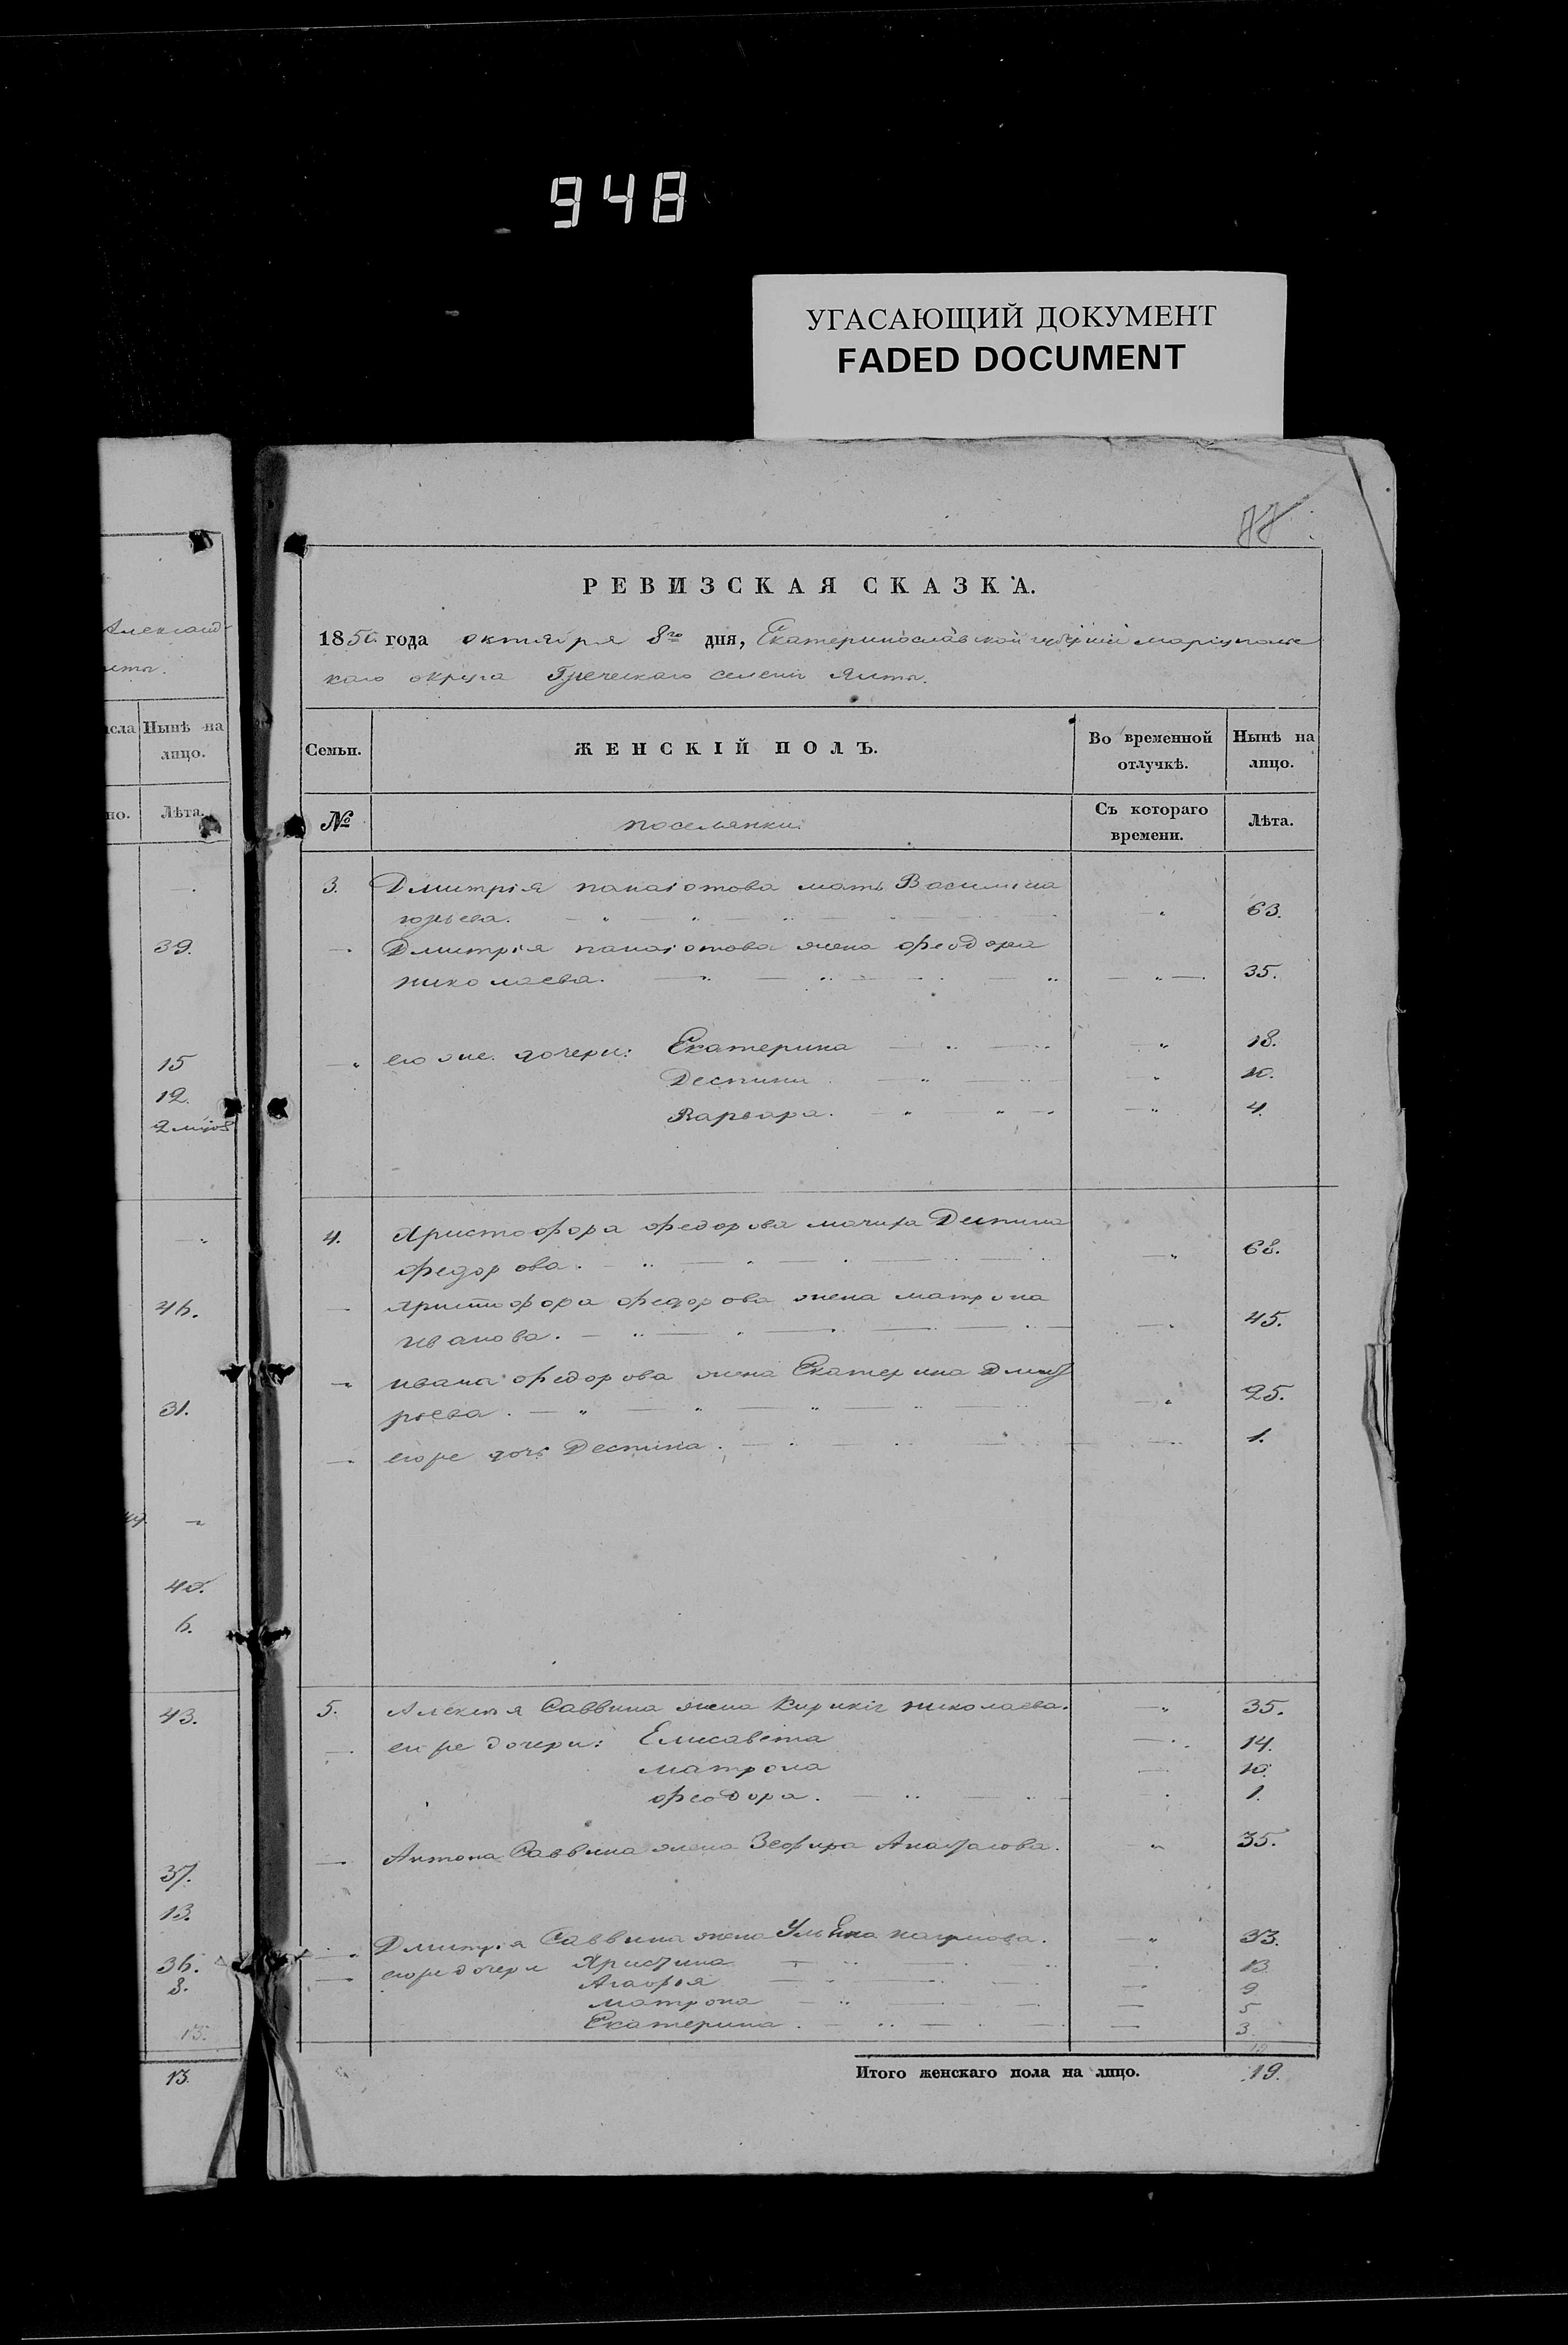 948
УГАСАЮЩИЙ ДОКУМЕНТ
FADED DOCUMENT
Александ-
Нынѣ на
лицо.
но.
Лѣта.
39.
15
12.
46.
31.
40.
6.
43.
37.
13.
36.
8.
13.
13.
РЕВИЗСКАЯ СКАЗКА.
1850 года октября 8го дня, Екатеринославской губерніи маріуполь
каго округа Греческаго селенія Ялты.
Семьи.
ЖЕНСКІЙ ПОЛЪ.
Во временной
отлучкѣ.
Нынѣ на
лицо.
№
поселянки.
Съ котораго
времени.
Лѣта.
3. Дмитрія панаіотова мать Василиса
юрьева. 63.
Дмитрія панаіотова жена феодора
николаева. 35.
его же дочери: Екатерина 18.
Деспини 10.
Варвара. 4.
4. Христофора федорова мачиха Деспина
федорова. 68.
Христофора федорова жена матрона
иванова. 45.
ивана федорова жена Екатерина Дмит
рьева. 25.
его же дочь Деспина. 1.
5. Алексѣя Саввина жена Кирикія николаева. 35.
его же дочери: Елисавета 14.
матрона 10.
феодора. 1.
Антона Саввина жена Зефира 35.
Дмитрія Саввина жена 33.
его же дочери Христина 13.
Агафія 9
матрона 5
Екатерина. 3
Итого женскаго пола на лицо. 19.